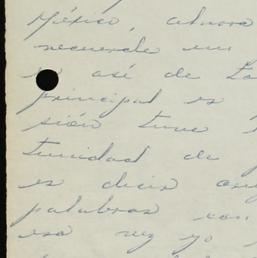 México, ahora
recuerde un
es así de
principal es
sión tuve
tunidad de
es decir
palabras con
esa vez yo